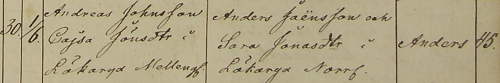 30 1/6 Andreas Johnsson Anders Jaënsson och
Cajsa Jönsdtr i Sara Jonasdtr i Anders 45.
Lökaryd Mellang. Lökaryd Norrg.